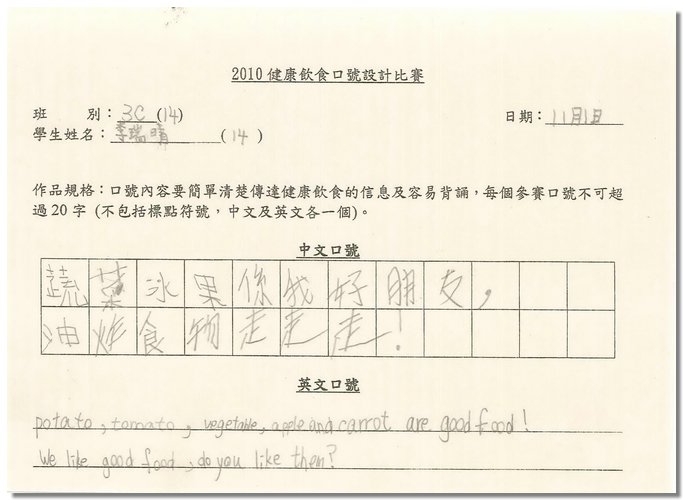 2010 健康飲食口號設計比賽
班 別：3C (14)
學生姓名：李瑞晴 (14)
日期：11月1日
作品規格：口號內容要簡單清楚傳達健康飲食的信息及容易背誦，每個參賽口號不可超
過20字 (不包括標點符號，中文及英文各一個)。
中文口號
蔬菜水果係我好朋友，
油炸食物走走走！
英文口號
potato, tomato, vegetable, apple and carrot are good food!
We like good food, do you like them?